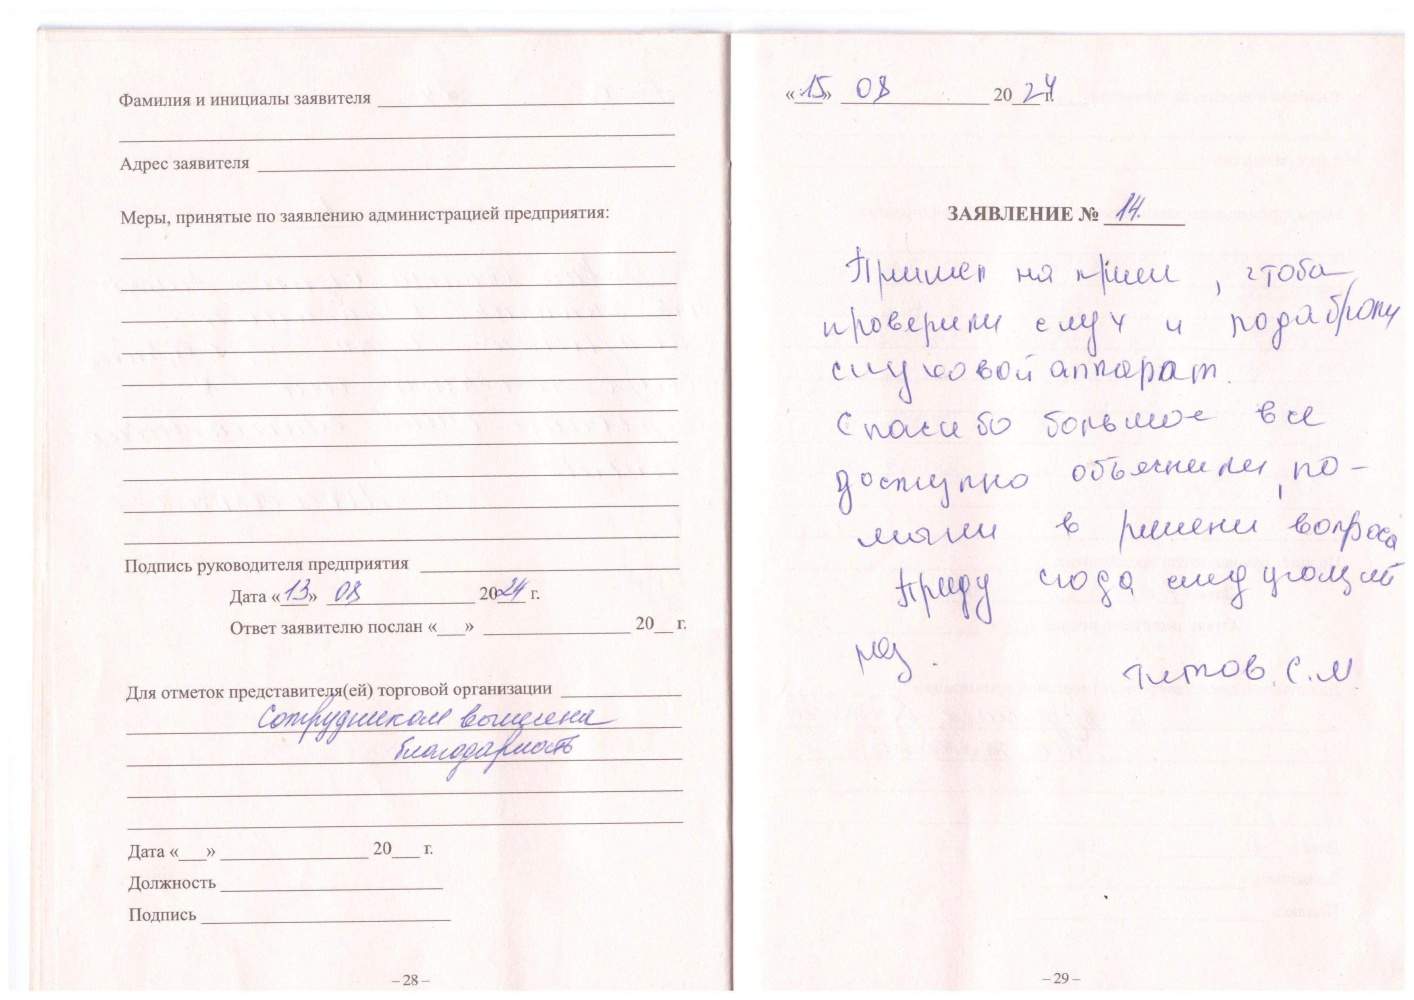 Фамилия и инициалы заявителя
Адрес заявителя
Меры, принятые по заявлению администрацией предприятия:
Подпись руководителя предприятия
Дата «13» 08 2024 г.
Ответ заявителю послан «___» 20__ г.
Для отметок представителя(ей) торговой организации
Сотрудником вынесена
благодарность
Дата «___» 20___ г.
Должность
Подпись
– 28 –
«15» 08 2024 г.
ЗАЯВЛЕНИЕ № 14.
Пришел на прием, чтобы
проверили слух и подобрали
слуховой аппарат.
Спасибо большое все
доступно объяснили, по-
могли в решени вопроса
Приду сюда следующий
раз.
Титов. С. М.
– 29 –